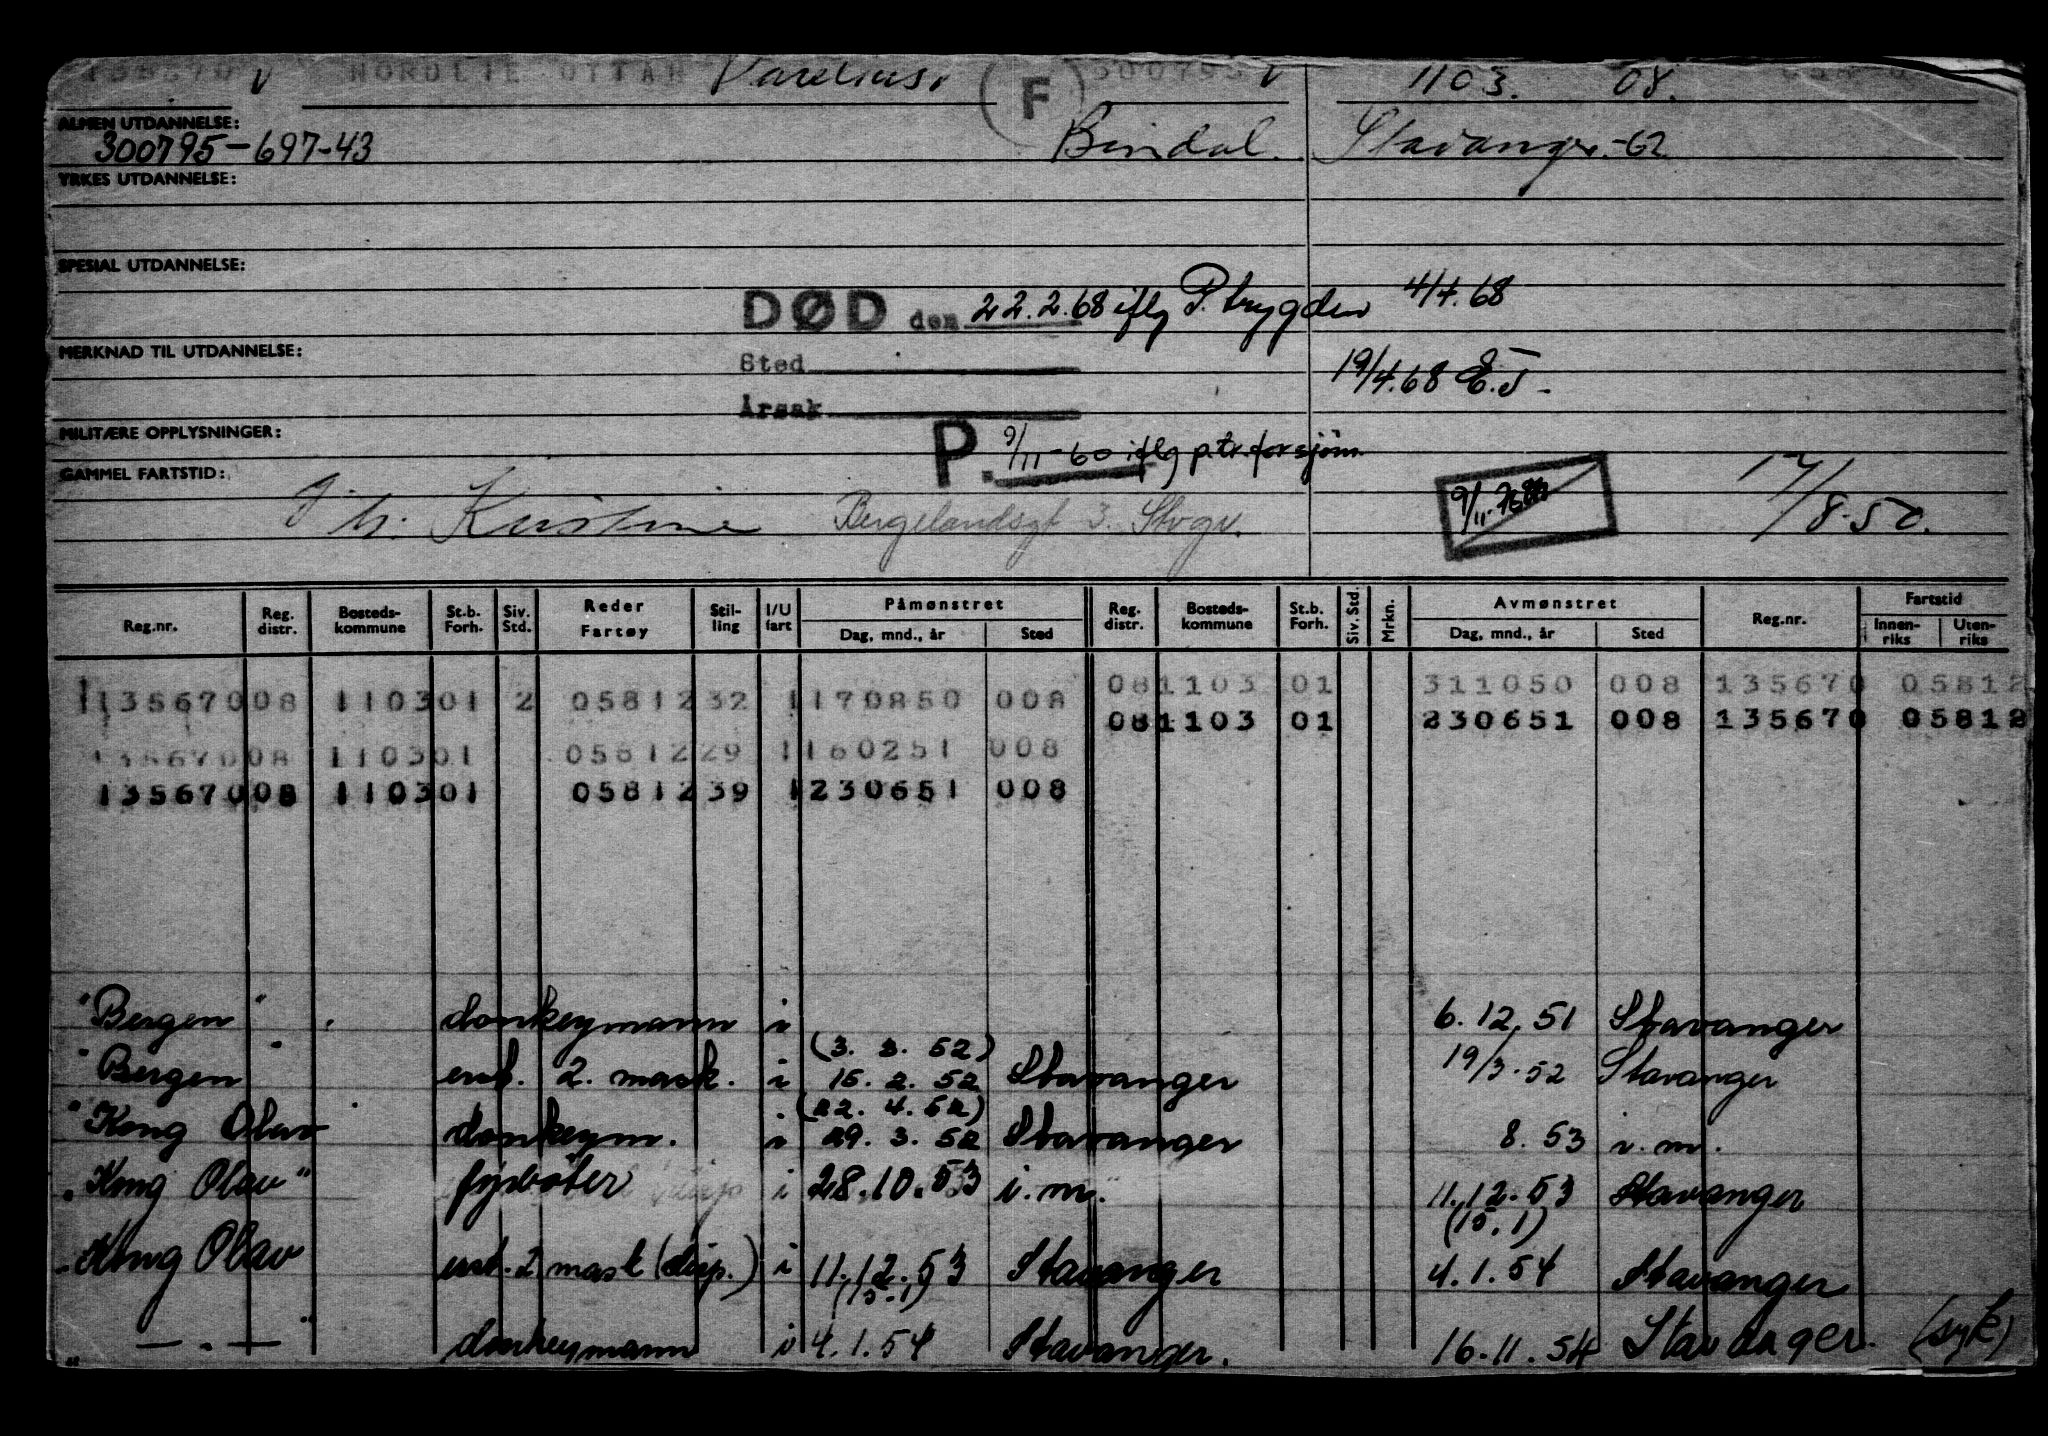 135670 v NORDLIE OTTAR Varelius. (F) 300795 v 1103. 08.
ALMEN UTDANNELSE:
300795-697-43 Bindal. Stavanger.-62
YRKES UTDANNELSE:
SPESIAL UTDANNELSE:
DØD den 22.2.68 iflg P.trygden 4/4.68
MERKNAD TIL UTDANNELSE:
Sted 19/4.68 E.J.
Årsak
MILITÆRE OPPLYSNINGER:
P. 9/11-60 iflg p.tr.forsjøm.
GAMMEL FARTSTID:
Kristine Bergelandsgt 3. Stvgr. 9/11- 17/8.50.
Reg.nr. Reg. distr. Bosteds-kommune St.b. Forh. Siv. Std. Reder Fartøy Stil-ling I/U fart Påmønstret Dag, mnd., år Sted Reg. distr. Bosteds-kommune St.b. Forh. Siv. Std. Mrkn. Avmønstret Dag, mnd., år Sted Reg.nr. Fartstid Innen-riks Uten-riks
135670 08 1103 01 2 05812 32 1 170850 008 08 1103 01 311050 008 135670 05812
08 1103 01 230651 008 135670 05812
135670 08 1103 01 05812 29 1 160251 008
135670 08 1103 01 05812 39 1 230651 008
"Bergen" donkeymann i 6.12.51 Stavanger
(3. 3. 52)
"Bergen" erst. 2. mask. i 15. 2. 52 Stavanger 19/3.52 Stavanger
(22. 4. 52)
"Kong Olav donkeym. i 29. 3. 52 Stavanger 8. 53 i.m.
"Kong Olav" fyrbøter i 28.10.53 i.m. 11.12.53 Stavanger
(15.1)
"Kong Olav erst. 2 mask (disp.) i 11.12.53 Stavanger 4.1.54 Stavanger
(15.1)
— . — " donkeymann i 4.1.54 Stavanger. 16.11.54 Stavanger. (syk)